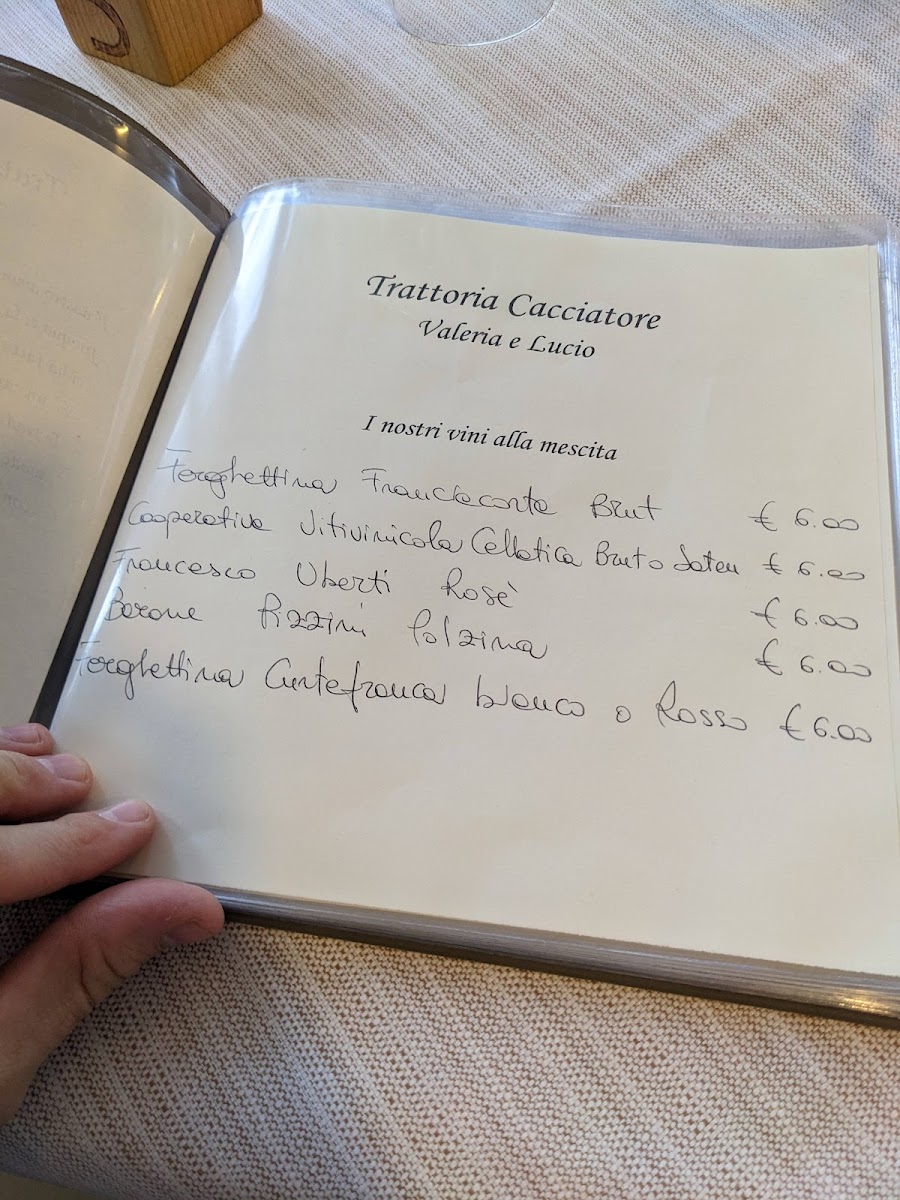 Trattoria Cacciatore
Valeria e Lucio
I nostri vini alla mescita
Ferghettina Franciaconta Brut € 6.00
Cooperativa Vitivinicola Cellatica Brut o Saten € 6.00
Francesco Uberti Rosè € 6.00
Barone Pizzini Polzina € 6.00
Ferghettina Curtefranca bianco o Rosso € 6.00